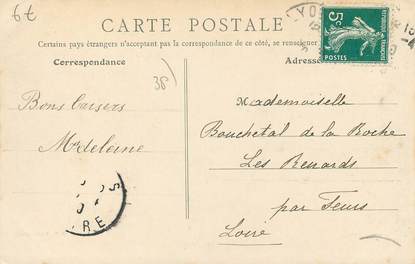 67
CARTE POSTALE
Certains pays étrangers n'acceptant pas la correspondance de ce côté, se renseigner
Correspondance
Adresse
38
5c
POSTES
Bons baisers
Madeleine
Mademoiselle
Bouchetal de la Roche
Les Renards
par Feurs
Loire